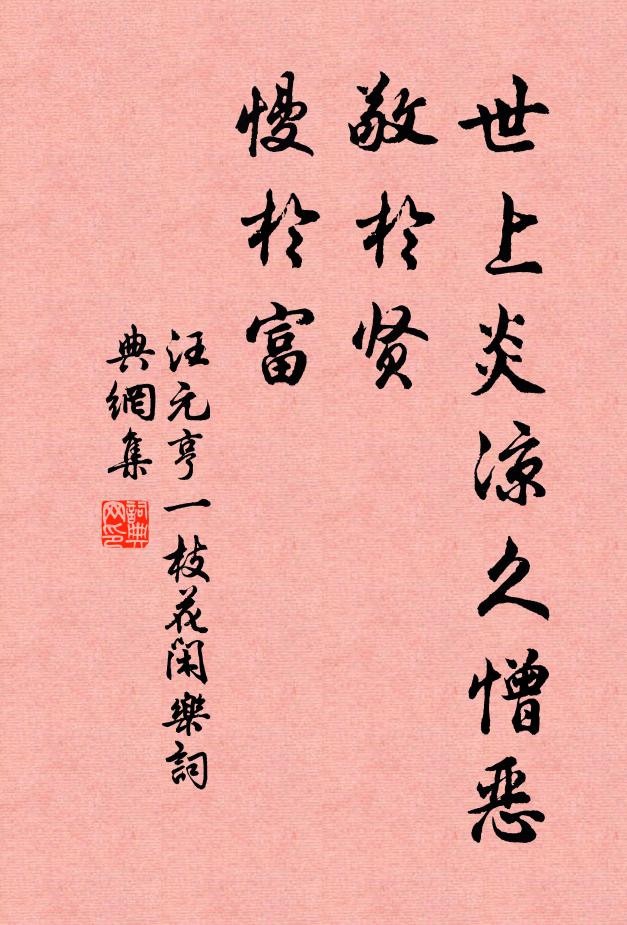 世上炎凉久憎恶
敬於贤
慢於富
汪元亨一枝花閑樂詞
典網集
詞典
网印